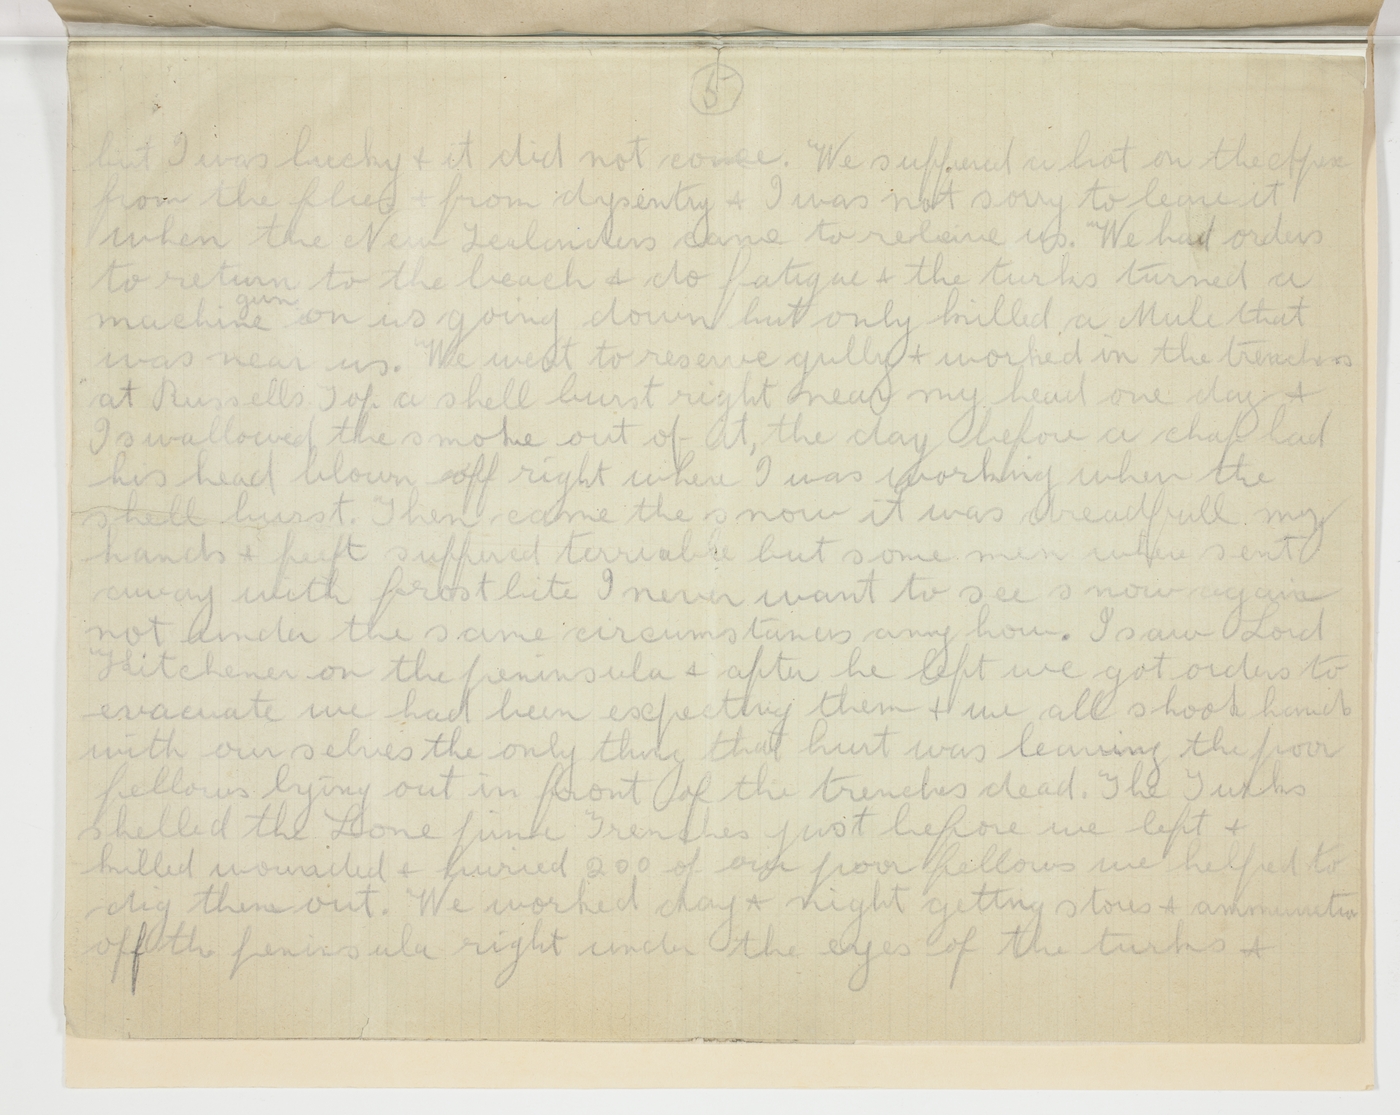 5
but I was lucky & it did not come. We suffered a lot on the Apex
from the flies & from dysentry & I was not sorry to leave it
when the New Zealanders came to releive us. We had orders
to return to the beach & do fatigue & the turks turned a
machine gun on us going down but only killed a Mule that
was near us. We went to reserve gully & worked in the trenches
at Russells Top. a shell burst right near my head one day &
I swallowed the smoke out of it, the day before a chap had
his head blown off right where I was working when the
shell burst. Then came the snow it was dreadfull my
hands & feet suffered terriable but some men where sent
away with frostbite I never want to see snow again
not under the same circumstances any how. I saw Lord
Kitchener on the peninsula & after he left we got orders to
evacuate we had been expecting them & we all shook hands
with ourselves the only thing that hurt was leaving the poor
fellows lying out in front of the trenches dead. The Turks
shelled the Lone pine Trenches just before we left &
killed wounded & buried 200 of our poor fellows we helped to
dig them out. We worked day & night getting stores & ammunition
off the peninsula right under the eyes of the turks &